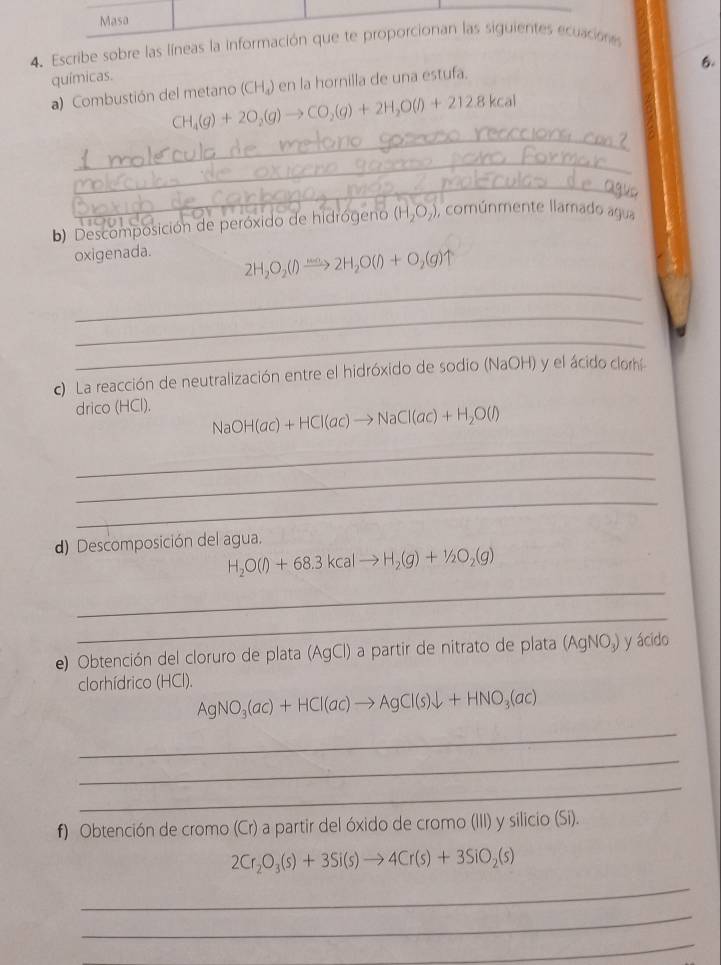 Masa
4. Escribe sobre las líneas la información que te proporcionan las siguientes ecuaciones
químicas.
6.
a) Combustión del metano (CH₄) en la hornilla de una estufa.
CH₄(g) + 2O₂(g) → CO₂(g) + 2H₂O(l) + 212.8 kcal
1 molécula de metano gaseoso reacciona con 2
moléculas de oxigeno gaseoso para formar
de carbono, mas 2 moleculas de agua
liquida
b) Descomposición de peróxido de hidrógeno (H₂O₂), comúnmente llamado agua
oxigenada.
2H₂O₂(l) → 2H₂O(l) + O₂(g)↑
c) La reacción de neutralización entre el hidróxido de sodio (NaOH) y el ácido clorhí-
drico (HCl).
NaOH(ac) + HCl(ac) → NaCl(ac) + H₂O(l)
d) Descomposición del agua.
H₂O(l) + 68.3 kcal → H₂(g) + ½O₂(g)
e) Obtención del cloruro de plata (AgCl) a partir de nitrato de plata (AgNO₃) y ácido
clorhídrico (HCl).
AgNO₃(ac) + HCl(ac) → AgCl(s)↓ + HNO₃(ac)
f) Obtención de cromo (Cr) a partir del óxido de cromo (III) y silicio (Si).
2Cr₂O₃(s) + 3Si(s) → 4Cr(s) + 3SiO₂(s)